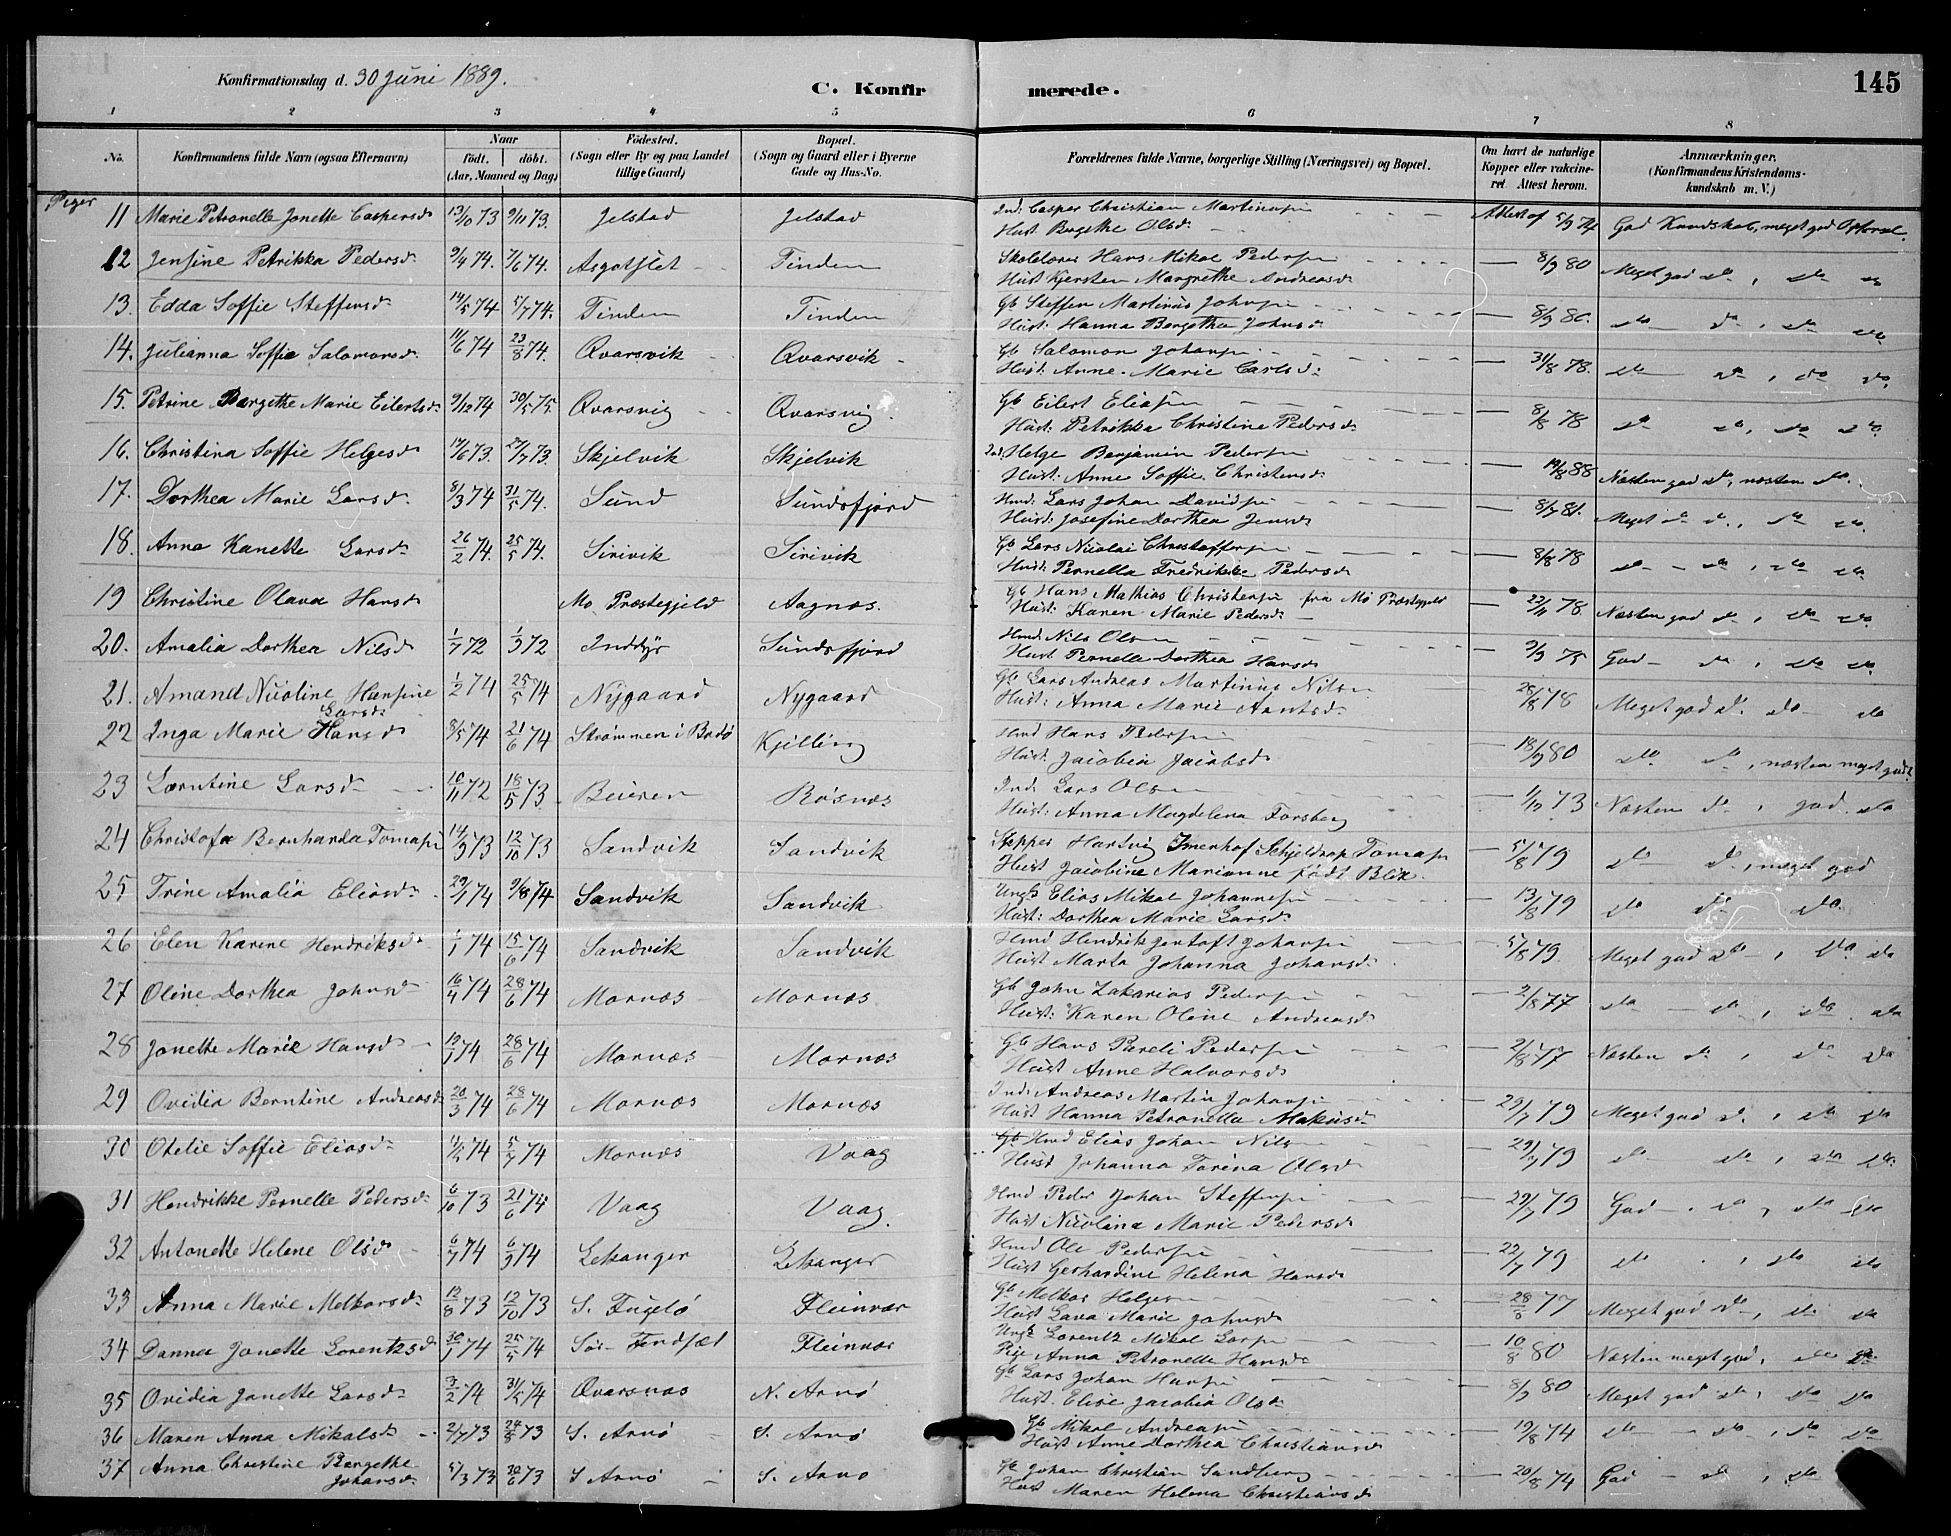 Konfirmationsdag d. 30 Juni 1889.
C. Konfirmerede.
145
1 2 3 4 5 6 7 8
No.
Konfirmandens fulde Navn (ogsaa Efternavn)
Naar
födt. döbt.
(Aar, Maaned og Dag)
Födested.
(Sogn eller By og paa Landet
tillige Gaard)
Bopæl.
(Sogn og Gaard eller i Byerne
Gade og Hus-No.
Forældrenes fulde Navne, borgerlige Stilling (Næringsvei) og Bopæl.
Om havt de naturlige
Kopper eller vakcine-
ret. Attest herom.
Anmærkninger.
(Konfirmandens Kristendoms-
kundskab m. V.)
Piger
11 Marie Petronelle Jonette Caspersd. 13/10 73 9/11 73. Jelstad Jelstad Ind: Casper Christian Martinusn Attest af 5/9 74 God Kundskab, meget god Opførsel.
Hust Bergethe Olsd:
12 Jensine Petrikka Pedersd. 9/4 74. 7/6 74. Asgotslet Tinden Skolelærer Hans Mikal Pedersen — 8/9 80 Meget god do, do do
Hust Kjersten Margrethe Andreasd
13. Edda Soffie Steffensd. 14/5 74 5/7 74. Tinden Tinden Gb Steffen Martinus Johnsn — 8/9 80. do do, do do
Hust: Hanna Bergetha Johnsd
14. Julianna Soffie Salomonsd. 11/6 74 23/8 74. Qvarsvik Qvarsvik Gb Salomon Johansn — 31/8 78. do do, do do.
Hust: Anne Marie Carlsd:
15. Petrine Bergethe Marie Eilertsd. 9/12 74 30/5 75. Qvarsvig Qvarsvig. Gb Eilert Eliasen — 8/8 78 do do, do do.
Hust: Petrikka Christine Pedersd
16. Christina Soffie Helgesd. 14/6 73. 27/7 73. Skjelvik Skjelvik Ind: Helge Benjamin Pedersen — 88 Næsten god do, næsten do.
Hust: Anne Soffie Christensd:
17. Dorthea Marie Larsd. 8/3 74 31/5 74. Sund Sundsfjord Hmd: Lars Johan Davidsn — 8/9 81. Meget do do, do do
Hust: Josefine Dorthea Jensd
18. Anna Kanette Larsd 26/2 74. 25/5 74. Sirivik Sirivik Gb Lars Nicolai Christoffersn — 8/8 78 do - do, do do
Hust: Pernella Fredrikke Pedersd
19 Christine Olava Hansd Mo Præstegjeld Aagnæs. Gb Hans Mathias Christensn fra Mo Præstegjeld — 22/11 78 Næsten god do, do do.
Hust: Karen Marie Pedersd
20. Amalia Dorthea Nilsd 1/7 72 1/9 72 Inddyr Sundsfjord Hmd: Nils Olsen — 9/9 75 God - do, do do
Hust Pernelle Dorthea Hansd
21. Amand Nicoline Hansine Larsd. 1/2 74 25/5 74 Nygaard Nygaard Gb Lars Andreas Martinus Nilsn — 28/8 78 Meget god do. do do
Hust: Anna Marie Arntsd.
22 Inga Marie Hansd 8/5 74 21/6 74 Strømmen i Bodø Kjelling Hmd Hans Pedersen — 18/9 80 do do, næsten meget god
Hust: Jacobia Jacobsd
23 Lærntine Larsd 10/11 72 18/5 73 Beieren Røsnæs Ind: Lars Olsen — 1/12 73 Næsten do, god do
Hust: Anna Magdelena Forsberg
24 Christofa Bernharda Tomasn 14/9 73 12/10 73 Sandvik Sandvik Skipper Hartvig Imerhof Schjeldrop Tomasn — 5/8 79 do do, meget god
Hust Jacobine Marianne født Blix
25 Trine Amalia Eliasd. 29/1 74 9/8 74 Sandvik Sandvik Ungk Elias Mikal Johannesn — 13/8 79 do do do.
Hust: Dorthea Marie Larsd
26 Elen Karine Hendriksd. 1/1 74 15/6 74 Sandvik Sandvik Hmd Hendrik Jentoft Johansn — 5/8 79. Meget god do, do do
Hust Marta Johanna Johansd.
27 Oline Dorthea Johnsd 16/4 74 28/6 74 Mornæs Mornæs. Gb John Zakarias Pedersen — 2/8 77 do do, do do
Hust: Karen Oline Andreasd
28 Jonette Marie Hansd 12/1 74 28/6 74 Mornæs Mornæs Gb Hans Pareli Pedersen — 2/8 77 Næsten do, do do
Hust Anne Halvorsd
29 Ovidia Berntine Andreasd 20/3 74 28/6 74 Mornæs Mornæs Ind: Andreas Martin Johansn — 29/7 79 Meget god do, do do
Hust Hanna Petronella Makusd
30 Otelie Soffie Eliasd. 74 5/7 74 Mornæs Vaag Hmd Elias Johan Nilsn — 29/7 79 do do, do do.
Hust Johanna Tarina Olsd
31 Hendrikke Pernelle Pedersd. 6/10 73 21/6 74 Vaag Vaag. Hmd Peder Johan Steffensn — 29/7 79 God do, do do
Hust Nicolina Marie Pedersd
32 Antonette Helene Olsd 6/7 74 6/9 74 Lekanger Lekanger Hmd Ole Pedersen — 29/7 79 do, do do
Hust Gerhardine Helena Hansd
33 Anna Marie Melkorsd. 12/8 73 12/10 73 S. Fugelø Fleinvær Gb Melkor Helgesen — 28/8 77 Meget god do, do do
Hust Lava Marie Johnsd
34 Danna Jonette Lorentzsd 30/1 74 25/5 74 Sør-Fendsæt Fleinvær Ungk Lorentz Mikal Larsn — 10/8 80 Næsten meget god, do do
Pige Anna Petronelle Hansd
35 Ovidia Janette Larsd. 3/2 74 31/5 74 Qvarsnæs N. Arnø Gb Lars Johan Hansn — 8/9 80 Meget god do, do do
Hust. Elise Jacobia Olsd
36 Maren Anna Mikalsd 2/7 73 24/8 73 S. Arnø S. Arnø Gb Mikal Andreasen — 19/8 74 do do, do do
Hust Anne Dorthea Christiansd
37 Anna Christine Bergethe Johansd 5/3 73 30/6 73 S Arnø S. Arnø Gb Johan Christian Sandberg — 20/8 74 God - do, do
Hust Maren Helena Christiansd